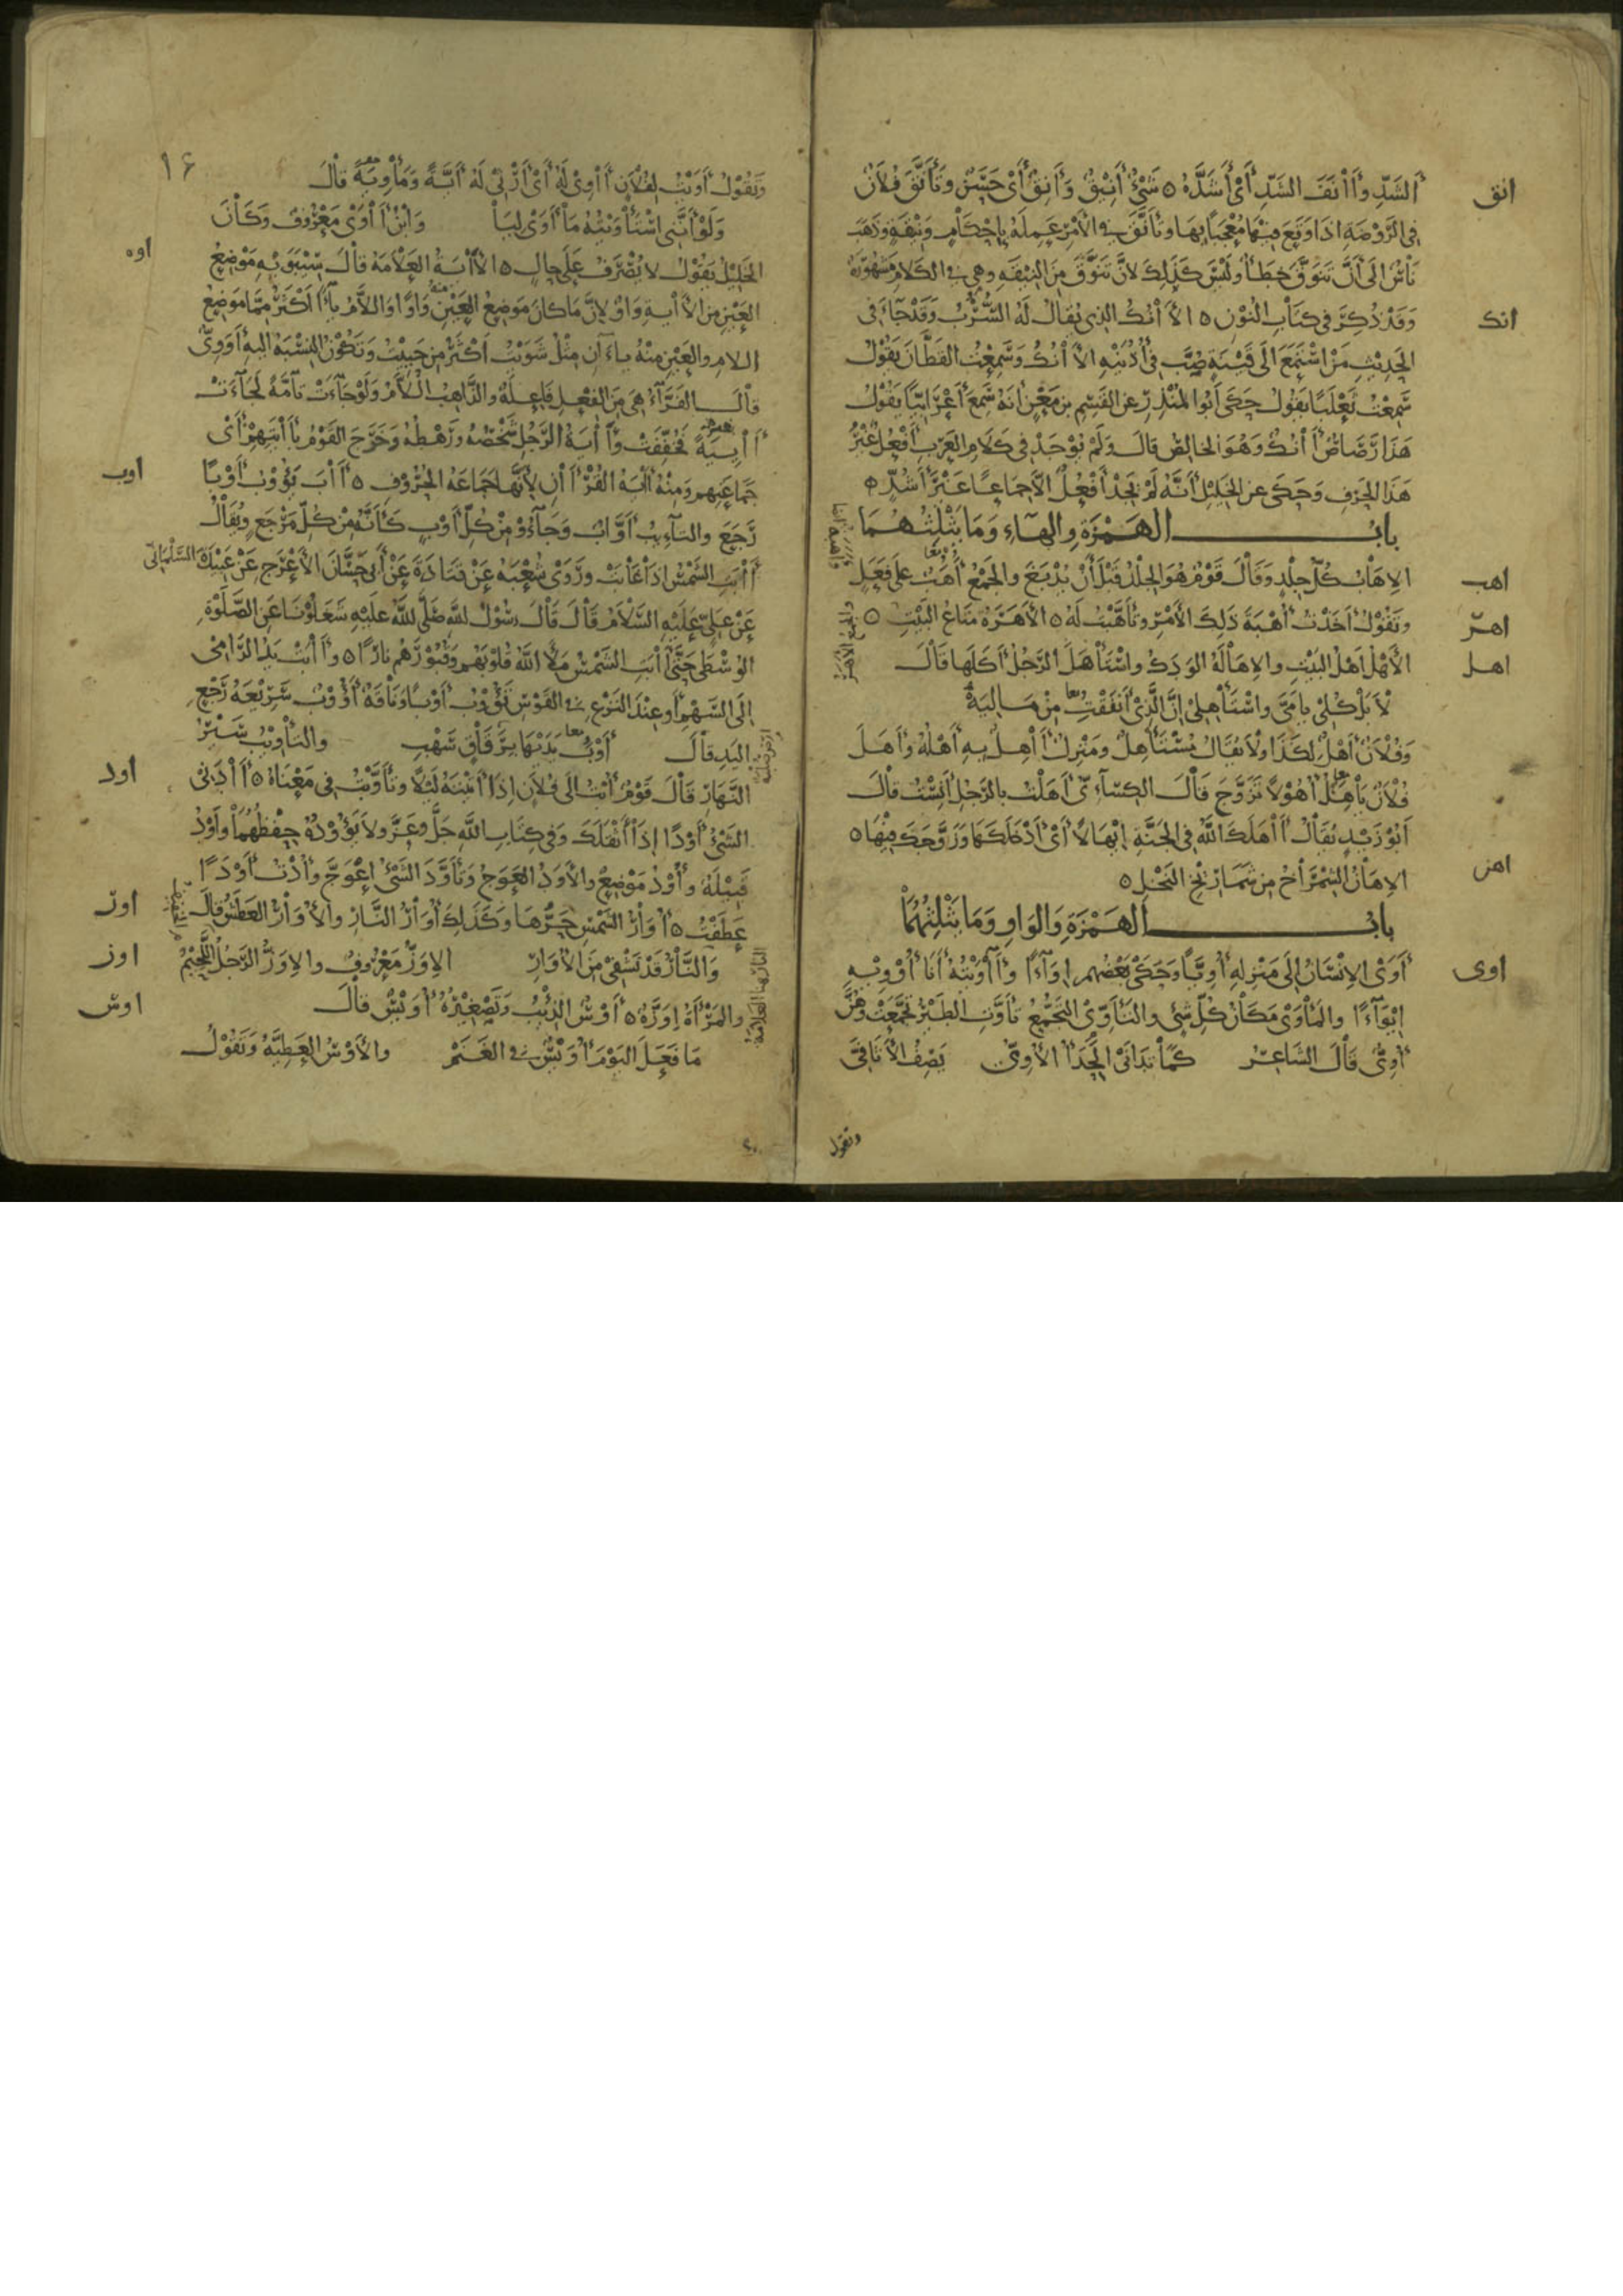 انق
الشَّدِّ وأَنْفَ الشَّدِّ أي أَشَدَّهُ ه شَيْءٌ أَنِيْقٌ وَأَنِقٌ أَيْ حَسَنٌ وتَأَنَّقَ فُلَانٌ
في الرَّوْضَةِ اذَا وَقَعَ فِيْهَا مُعْجَبًا بِهَا وتَأَنَّقَ في الأَمْرِ عَمِلَهُ بِإِحْكَامٍ وَنِيْقَةٍ وذَهَبَ
نَاسٌ إلَى أَنَّ تَنَوَّقَ خَطَأٌ ولَيْسَ كَذَلِكَ لانَّ تَنَوَّقَ مِنَ النِّيْقَةِ وهي في الكَلامِ مَشْهُورَةٌ
انك
وَقَدْ ذُكِرَ في كِتَابِ النُّوْنِ ه الآنُكُ الذِي يُقَالُ لَهُ السُّرُبُ وَقَدْ جَاءَ في
الحَدِيْثِ مَنْ اسْتَمَعَ الَى قَيْنَةٍ صُبَّ في أُذُنَيْهِ الآنُكُ وَسَمِعْتُ القَطَّانَ يَقُوْلُ
سَمِعْتُ ثَعْلَبًا يَقُولُ حَكَى أَبُوا المُنْذِرِ عن القَسِمِ بنِ مَعْنٍ انَهُ سَمِعَ أَعْرَابِيًّا يَقُولُ
هَذَا رَصَاصٌ آنُكٌ وَهُوَ الخالِصُ قالَ ولَمْ يُوْجَدْ في كَلَامِ العَرَبِ أَفْعُلٌ غَيْرُ
هَذَا الحَرْفِ وَحَكَى عن الخَلِيْلِ أَنَّهُ لَمْ نَجِدْ أَفْعُلَ الاَّ جِمَاعًا غَيْرَ أَشُدٍّ ه
بابُ الهَمْزَةِ والهَاءِ وَمَا يَثْلِثُهُمَا
اهب
الاِهَابُ كُلُّ جِلْدٍ وَقَالَ قَوْمٌ هُوَ الجِلْدُ قَبْلَ أَنْ يُدْبَغَ والجَمْعُ أَهَبٌ على فَعَلٍ
اهر
وتَقُوْلُ أَخَذْتُ أُهْبَةَ ذَلِكَ الأَمْرِ وتَأَهَّبْتُ لَهُ ه الأَهَرَةُ مَتَاعُ البَيْتِ ه
اهل
الأَهْلُ أَهْلُ البَيْتِ والاِهَالَةُ الوَدَكُ واسْتَأْهَلَ الرَّجُلُ أَكَلَهَا قَالَ
لاَ بَلْ كُلِيْ يا مَيَّ واسْتَأْهِلِيْ إنَّ الَّذِيْ أَنْفَقْتُ مِنْ مَالِيَهْ
وَفُلَانٌ أَهْلٌ لِكَذَا ولَا يُقَالُ مُسْتَأْهِلٌ ومَنْزِلٌ آهِلٌ بِهِ أَهْلُهُ وأَهَلَ
فُلَانٌ يَأْهُلُ أُهُوْلاً تَزَوَّجَ قَالَ الكِسَآئِيُّ أَهِلْتُ بالرَّجُلِ أَنِسْتُ قَالَ
أَبُوْ زَيْدٍ يُقَالُ آهَلَكَ اللَّهُ في الجَنَّةِ ايْهَالاً أَيْ أَدْخَلَكَهَا وَزَوَّجَكَ فِيْهَا ه
اهن
الاِهَانُ الشِّمْرَاخُ مِنْ شَمَارِيْخِ النَّخْلِ ه
بابُ الهَمْزَةِ وَالوَاوِ وَمَا يَثْلِثُهُمَا
اوى
أَوَى الاِنْسَانُ إلَى مَنْزِلِهِ أُوِيًّا وحَكَى بَعْضُهم اِوَآءً وآوَيْتُهُ أَنَا أُوْوِيْهِ
اِيْوَآءً والمَأْوَى مَكَانُ كُلِّ شَيْءٍ والتَأَوِّيْ التَّجَمُّعُ تَأَوَّتِ الطَيْرُ تَجَمَّعَتْ وهُنَّ
أُوِيٌّ قَالَ الشَّاعِرُ كَمَا تَدَانَى الحِدَأُ الأُوِيُّ يَصِفُ الأَثَافِيَّ
وتقول
١٦
وَتَقُوْلُ أَوَيْتُ لِفُلَانٍ آوِيْ لَهُ أَيْ أَرْثِي لَهُ أَيَّةً وَمَأْوِيَةً قَالَ
وَلَوْ أَنَّنِي اسْتَأْوَيْتُهُ مَا أَوَى لِيَا وَابْنُ آوَى مَعْرُوْفٌ وَكَانَ
اوه
الخَلِيْلُ يَقُوْلُ لا يُصْرَفُ عَلَى حالٍ ه الآيَةُ العَلَامَةُ قالَ سِيْبَوَيْهِ مَوْضِعُ
العَيْنِ مِنَ الآيةِ وَاوٌ لِانَّ ما كانَ مَوْضِعُ العَيْنِ وَاوًا وَاللاَّمُ يَآءً أَكْثَرُ مِمَّا مَوْضِعُ
اللامِ والعَيْنِ مِنْهُ ياءَانِ مِثْلُ شَوَيْتُ أَكْثَرُ مِنْ حَيِيْتُ وَتَكُوْنُ النِّسْبَةُ اليهِ أَوَوِيٌّ
قَالَ الفَرَّآءُ هِيَ مِنَ الفِعْلِ فَاعِلَةٌ والذَّاهِبُ اللَّامُ وَلَوْ جَآءَتْ تَآمَّةً لَجَآءَتْ
آيِيَةٌ فَخُفِّفَتْ وآيَةُ الرَّجُلِ شَخْصُهُ ورَهْطُهُ وَخَرَجَ القَوْمُ بِآيَتِهِمْ أَيْ
اوب
جَمَاعَتِهِم وَمِنْهُ آيَةُ القُرْآنِ لِأَنَّهَا جَمَاعَةُ الحُرُوْفِ ه آبَ يَؤُوْبُ أَوْبًا
رَجَعَ والتَأْوِيْبُ أَوَّابٌ وَجَآءُوْ مِنْ كُلِّ أَوْبٍ كَأَنَّهُ مِنْ كُلِّ مَرْجَعٍ ويُقَالُ
آبَتِ الشَّمْسُ اذَا غَابَتْ ورَوَى شُعْبَةُ عَنْ قَتَادَةَ عَنْ أَبِي حَسَّانَ الأَعْرَجِ عَنْ عَبِيْدَةَ السَّلْمَانِيّ
عَنْ عَلِيٍّ عَلَيْهِ السَّلَامُ قَالَ قَالَ رسُوْلُ اللهِ صَلَّى للهُ علَيْهِ شَغَلُوْنَا عَنِ الصَّلوةِ
الوُسْطَى حَتَّى آبَتِ الشَمْسُ مَلَأَ اللَّهُ قُلُوْبَهُم وقُبُوْرَهُم نَارًا ه وآبَتْ يَدُ الرَّامِيْ
إلَى السَّهْمِ أو عِنْدَ النَزْعِ في القَوْسِ تَؤُوْبُ أَوْبًا ونَاقَةٌ أَوُوْبٌ سَرِيْعَةُ رَجْعِ
اليَدِ قالَ أَوْبُ يَدَيْهَا بِرَقَاقٍ سَهْبِ والتَأْوِيْبُ سَيْرُ
اود
النَّهَارِ قَالَ قَوْمٌ أُبْتُ الَى فُلَانٍ اِذَا أَتَيْتَهُ لَيْلاً وتَأَوَّبْتُ في مَعْنَاهُ ه آدَنِي
الشَيْءُ أَوْدًا إذَا أَثْقَلَكَ وَفي كِتَابِ اللَّهِ جَلَّ وعَزَّ ولَا يَؤُوْدُهُ حِفْظُهُمَا وأَوْدُ
قَبِيْلَةٌ وأُوْدُ مَوْضِعٌ والأَوَدُ العِوَجُ وتَأَوَّدَ الشَيْءُ اِعْوَجَّ وأُدْتُ أَوْدًا
اور
عَطَفْتُ ه أُوَارُ الشَمْسِ حَرُّهَا وكَذَلِكَ أُوَارُ النَّارِ والأُوَارُ العَطَشُ قَالَ
اوز
وَالنَّارُ قَدْ تَشْفِيْ مِنَ الأُوَارِ الاِوَزُّ مَعْرُوفٌ والاِوَزُّ الرَجُلُ اللَّحِيْمُ
اوس
والمَرْأَةُ اِوَزَّةٌ ه أَوْسٌ الذِّئْبُ وَتَصْغِيْرُهُ أُوَيْسٌ قَالَ
مَا فَعَلَ اليَوْمَ أُوَيْسٌ في الغَنَمْ والأَوْسُ العَطِيَّةُ وَتَقُوْلُ